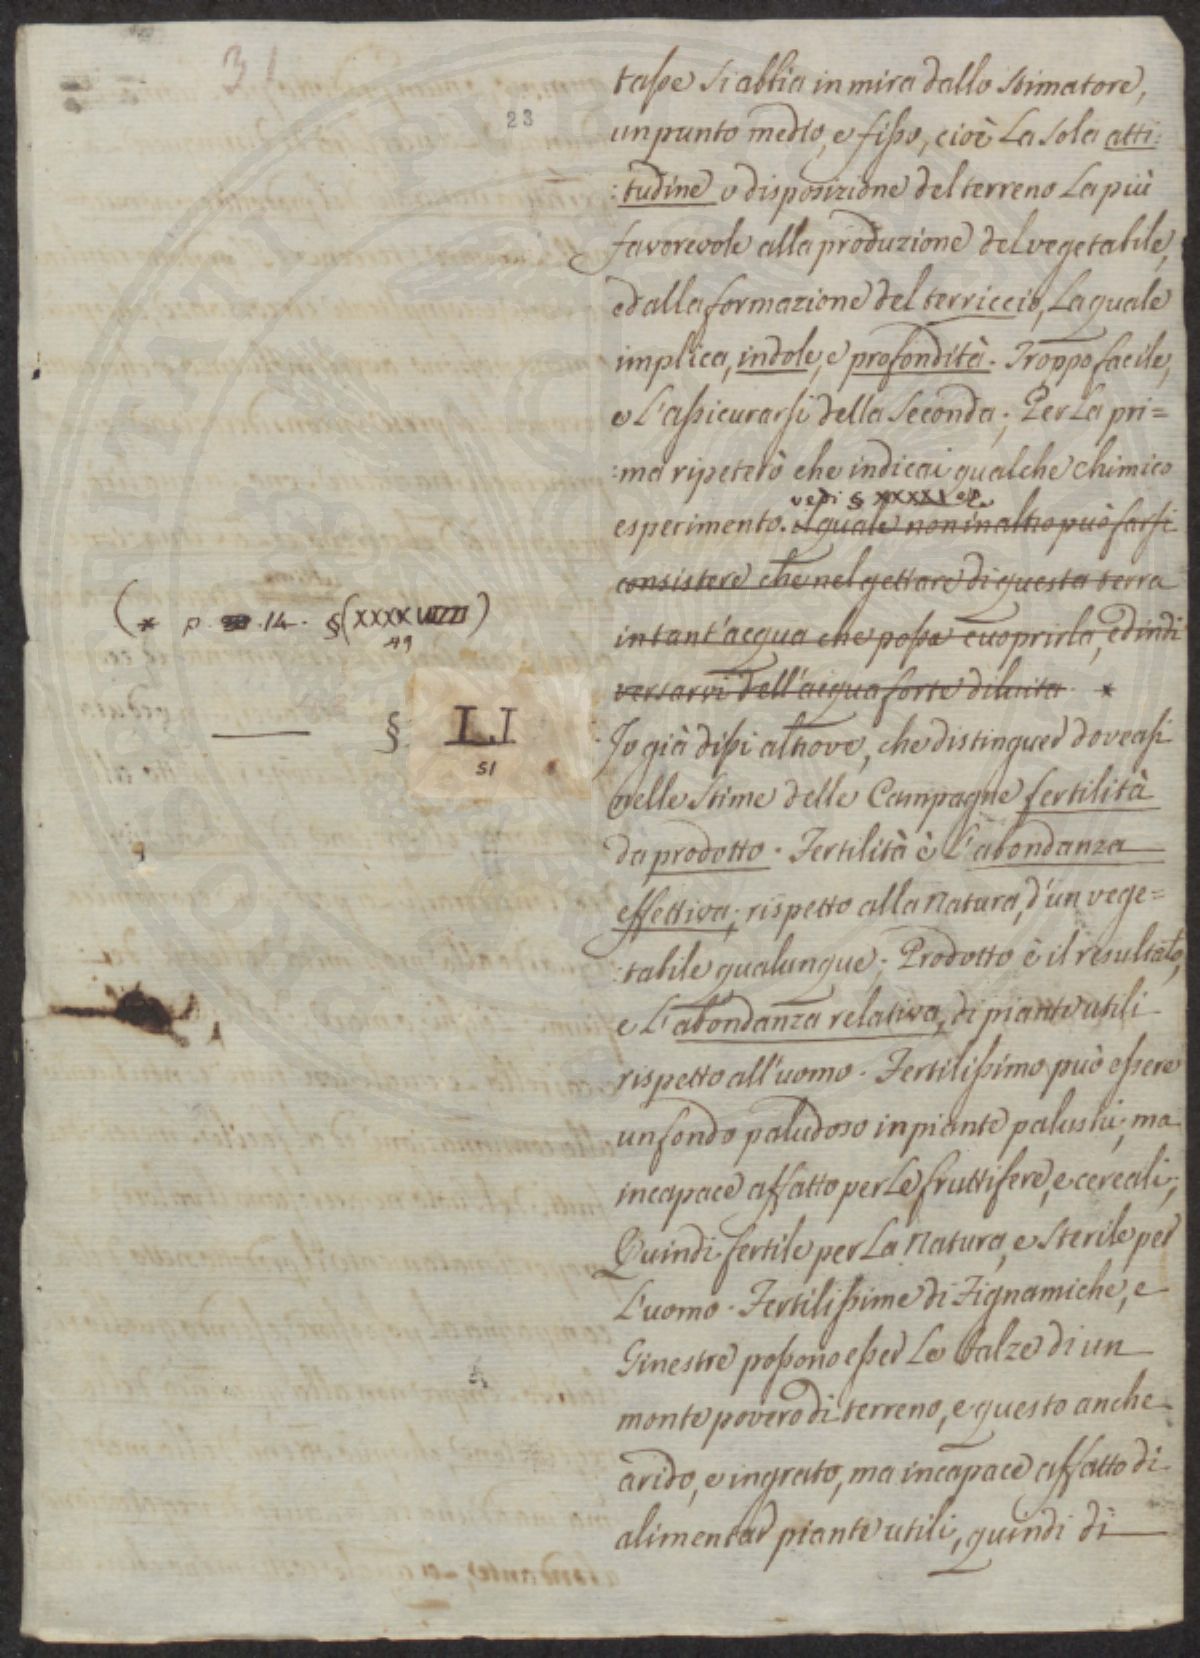 31
23
tasse si abbia in mira dallo Stimatore,
un punto medio, e fisso, cioè La sola atti:
:tudine o disposizione del terreno La più
favorevole alla produzione del vegetabile,
ed alla formazione del terriccio, La quale
implica, indole, e profondità. Troppo facile,
e L'assicurarsi della Seconda; Per La pri=
:ma ripeterò che indicai qualche chimico
vedi § XXXXI
esperimento. il quale non in altro può farsi
consistere che nel gettare di questa terra
in tant'acqua che possa cuoprirla, ed indi
versarvi dell'acqua forte diluita *
(* p. 14. § (XXXXVIIII)
49
§ LI
51
Io già dissi altrove, che distinguer doveasi
nelle Stime delle Campagne fertilità
da prodotto. Fertilità è L'abondanza
effettiva, rispetto alla Natura, d'un vege=
:tabile qualunque; Prodotto è il resultato,
e L'abondanza relativa, di piante utili
rispetto all'uomo. Fertilissimo può essere
un fondo paludoso in piante palustri, ma
incapace affatto per Le fruttifere, e cereali;
Quindi fertile per La Natura, e Sterile per
L'uomo. Fertilissime di Tignamiche, e
Ginestre possono esser Le balze di un
monte povero di terreno, e questo anche
arido, e ingrato, ma incapace affatto di
alimentar piante utili, quindi di